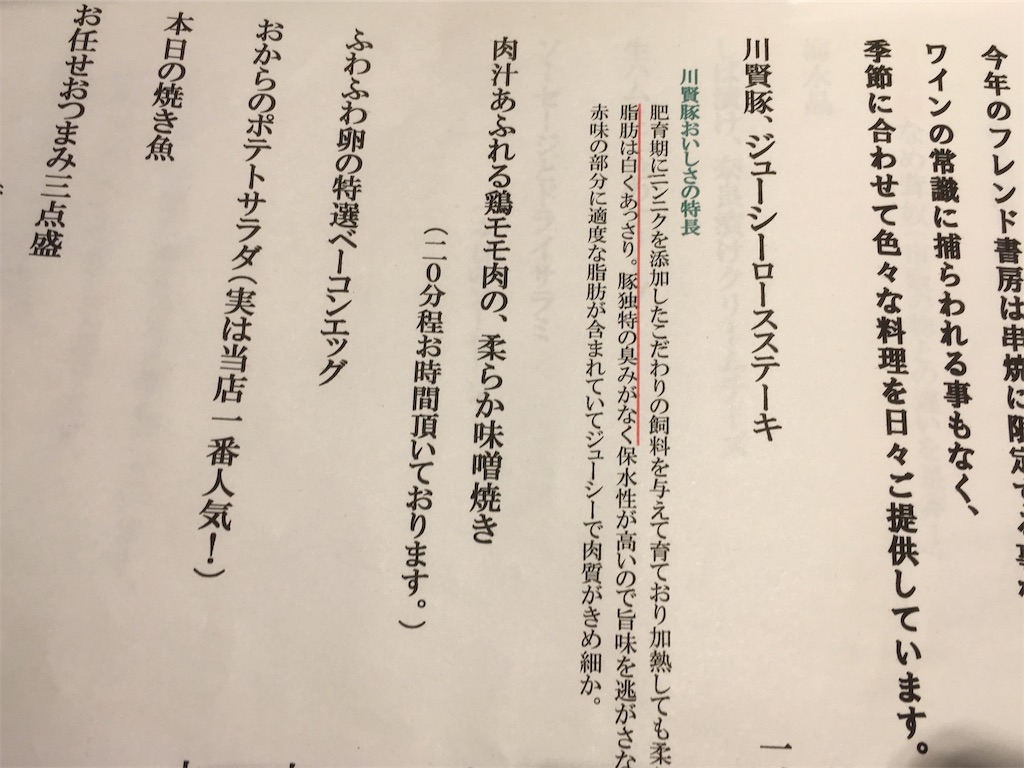 今年のフレンド書房は串焼に限定
ワインの常識に捕らわれる事もなく、
季節に合わせて色々な料理を日々ご提供しています。
川賢豚、ジューシーロースステーキ
一
川賢豚おいしさの特長
肥育期にニンニクを添加したこだわりの飼料を与えて育ており加熱しても柔
脂肪は白くあっさり。豚独特の臭みがなく保水性が高いので旨味を逃がさな
赤味の部分に適度な脂肪が含まれていてジューシーで肉質がきめ細か。
肉汁あふれる鶏モモ肉の、柔らか味噌焼き
（二０分程お時間頂いております。）
ふわふわ卵の特選ベーコンエッグ
おからのポテトサラダ（実は当店一番人気！）
本日の焼き魚
お任せおつまみ三点盛